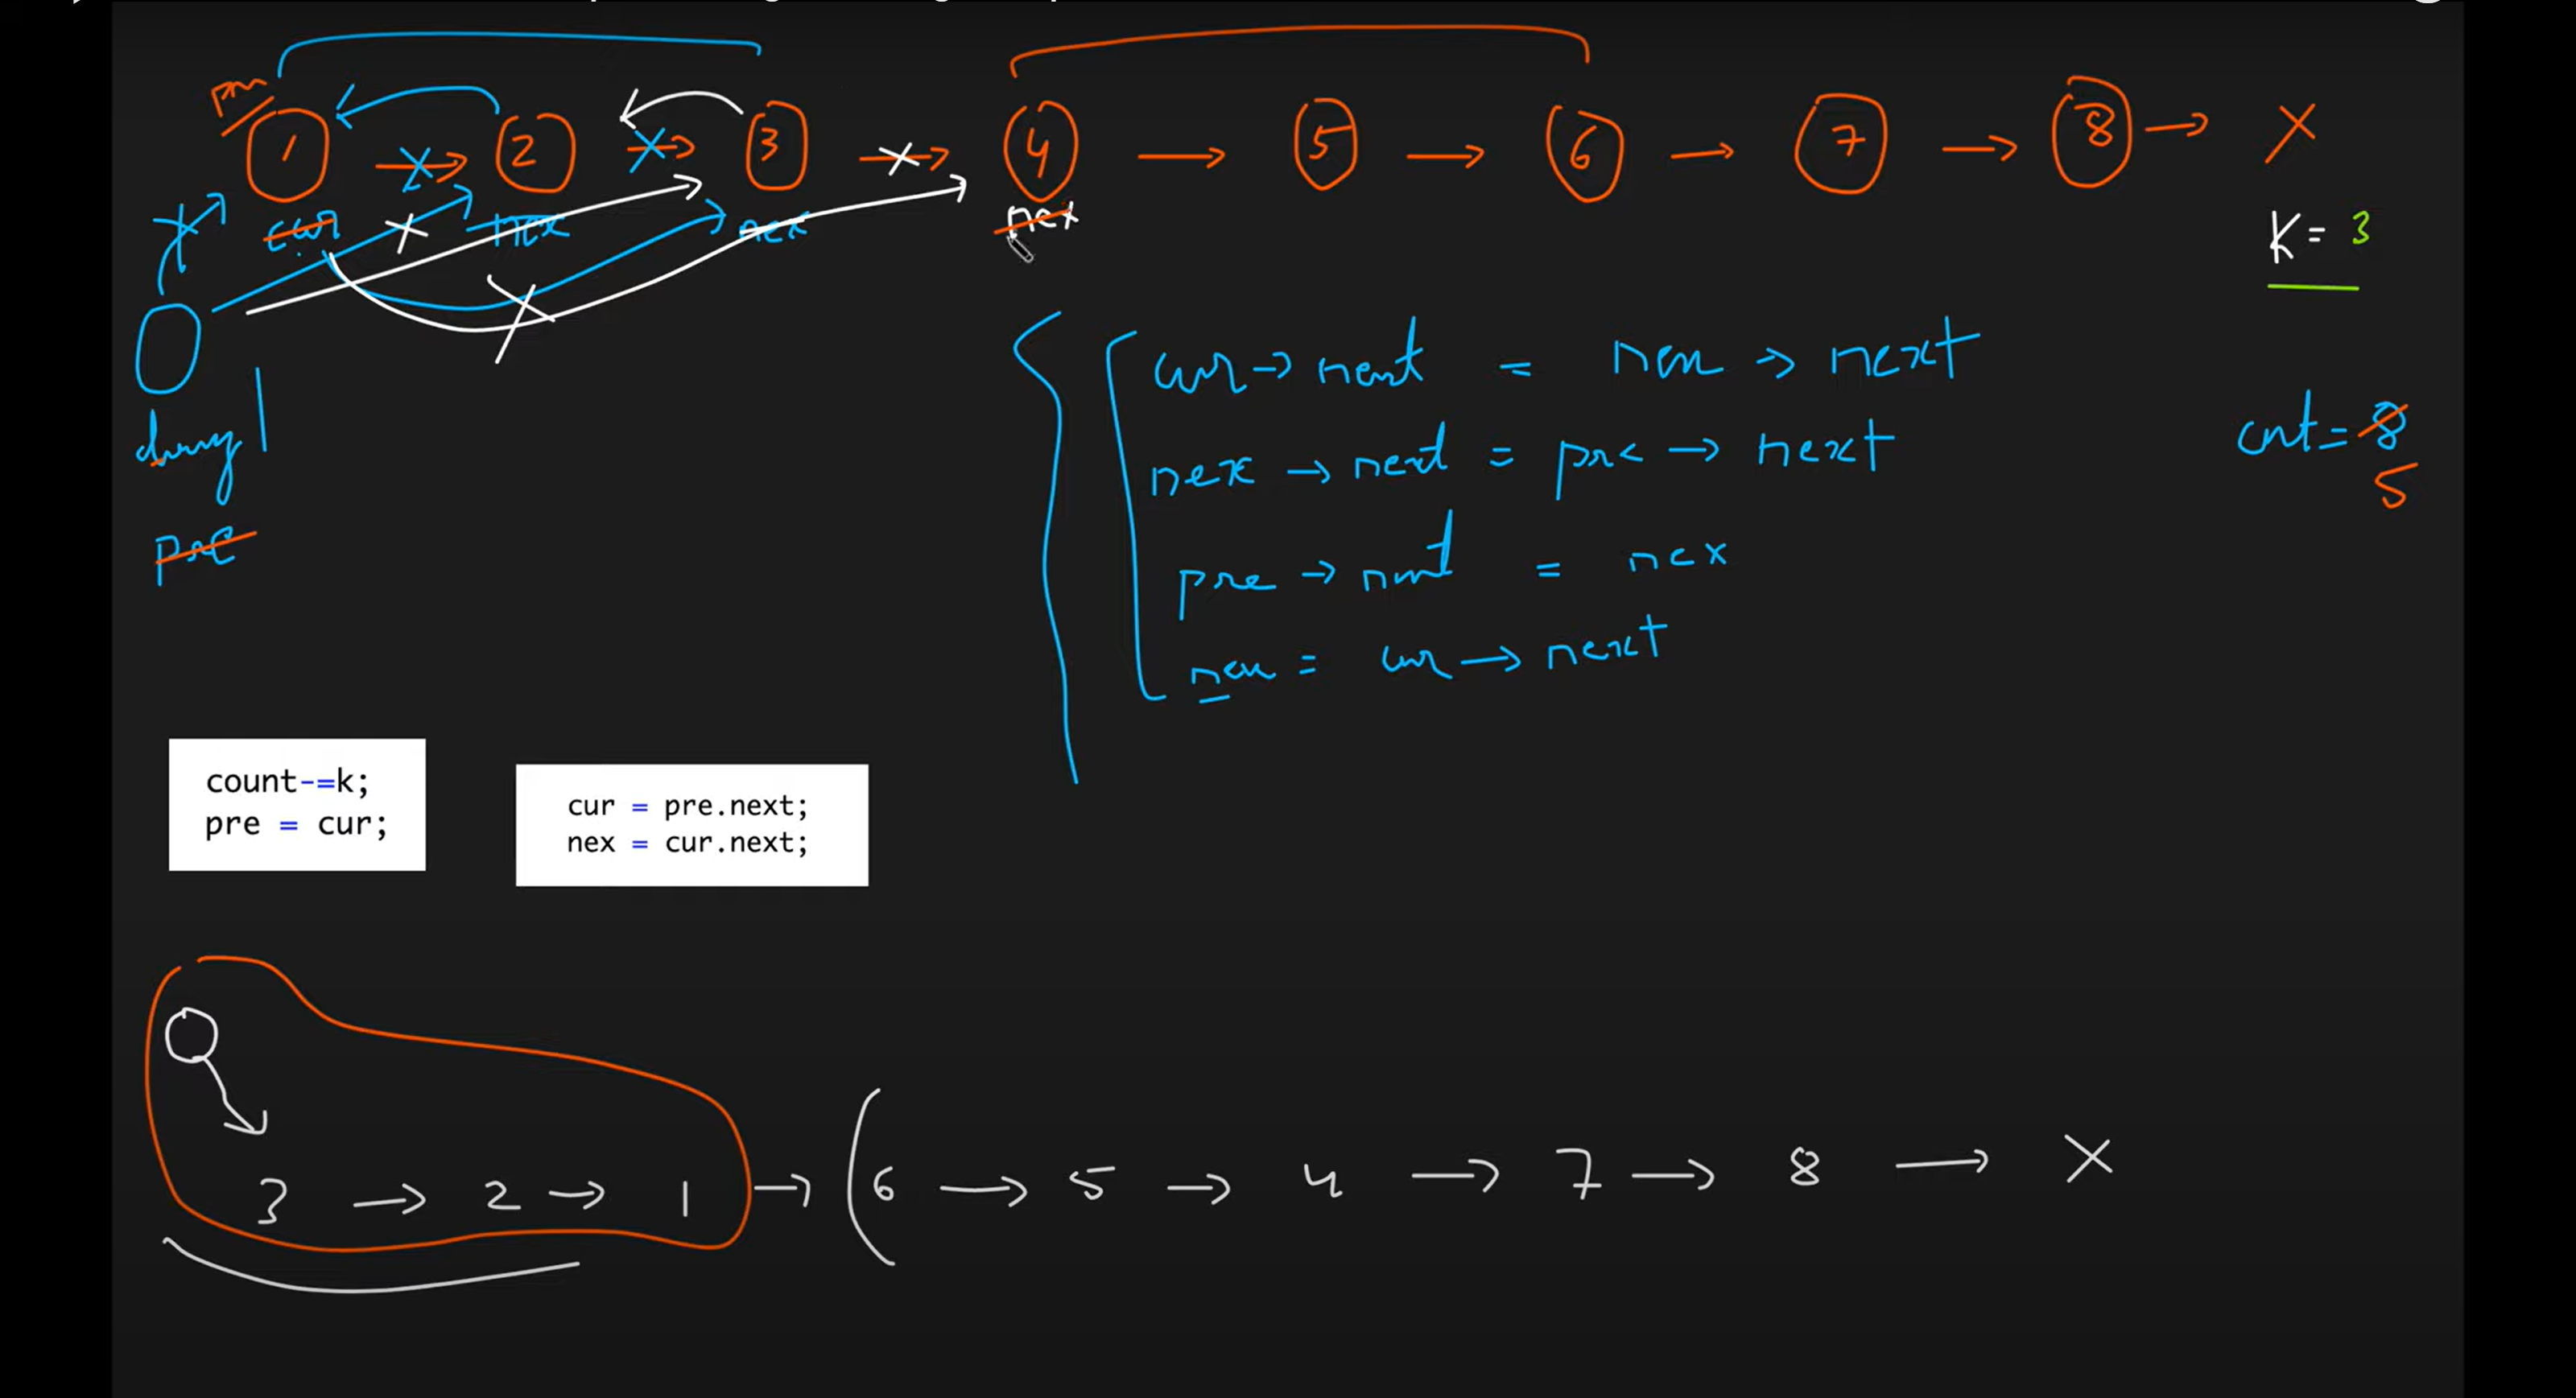 pre
1 2 3 4 → 5 → 6 → 7 → 8 → X
cur nex nex nex
K = 3
cur → next = nex → next
nex → next = pre → next
pre → next = nex
nex = cur → next
cnt = 8
5
dumy
pre
count-=k;
pre = cur;
cur = pre.next;
nex = cur.next;
3 → 2 → 1 → ( 6 → 5 → 4 → 7 → 8 → X